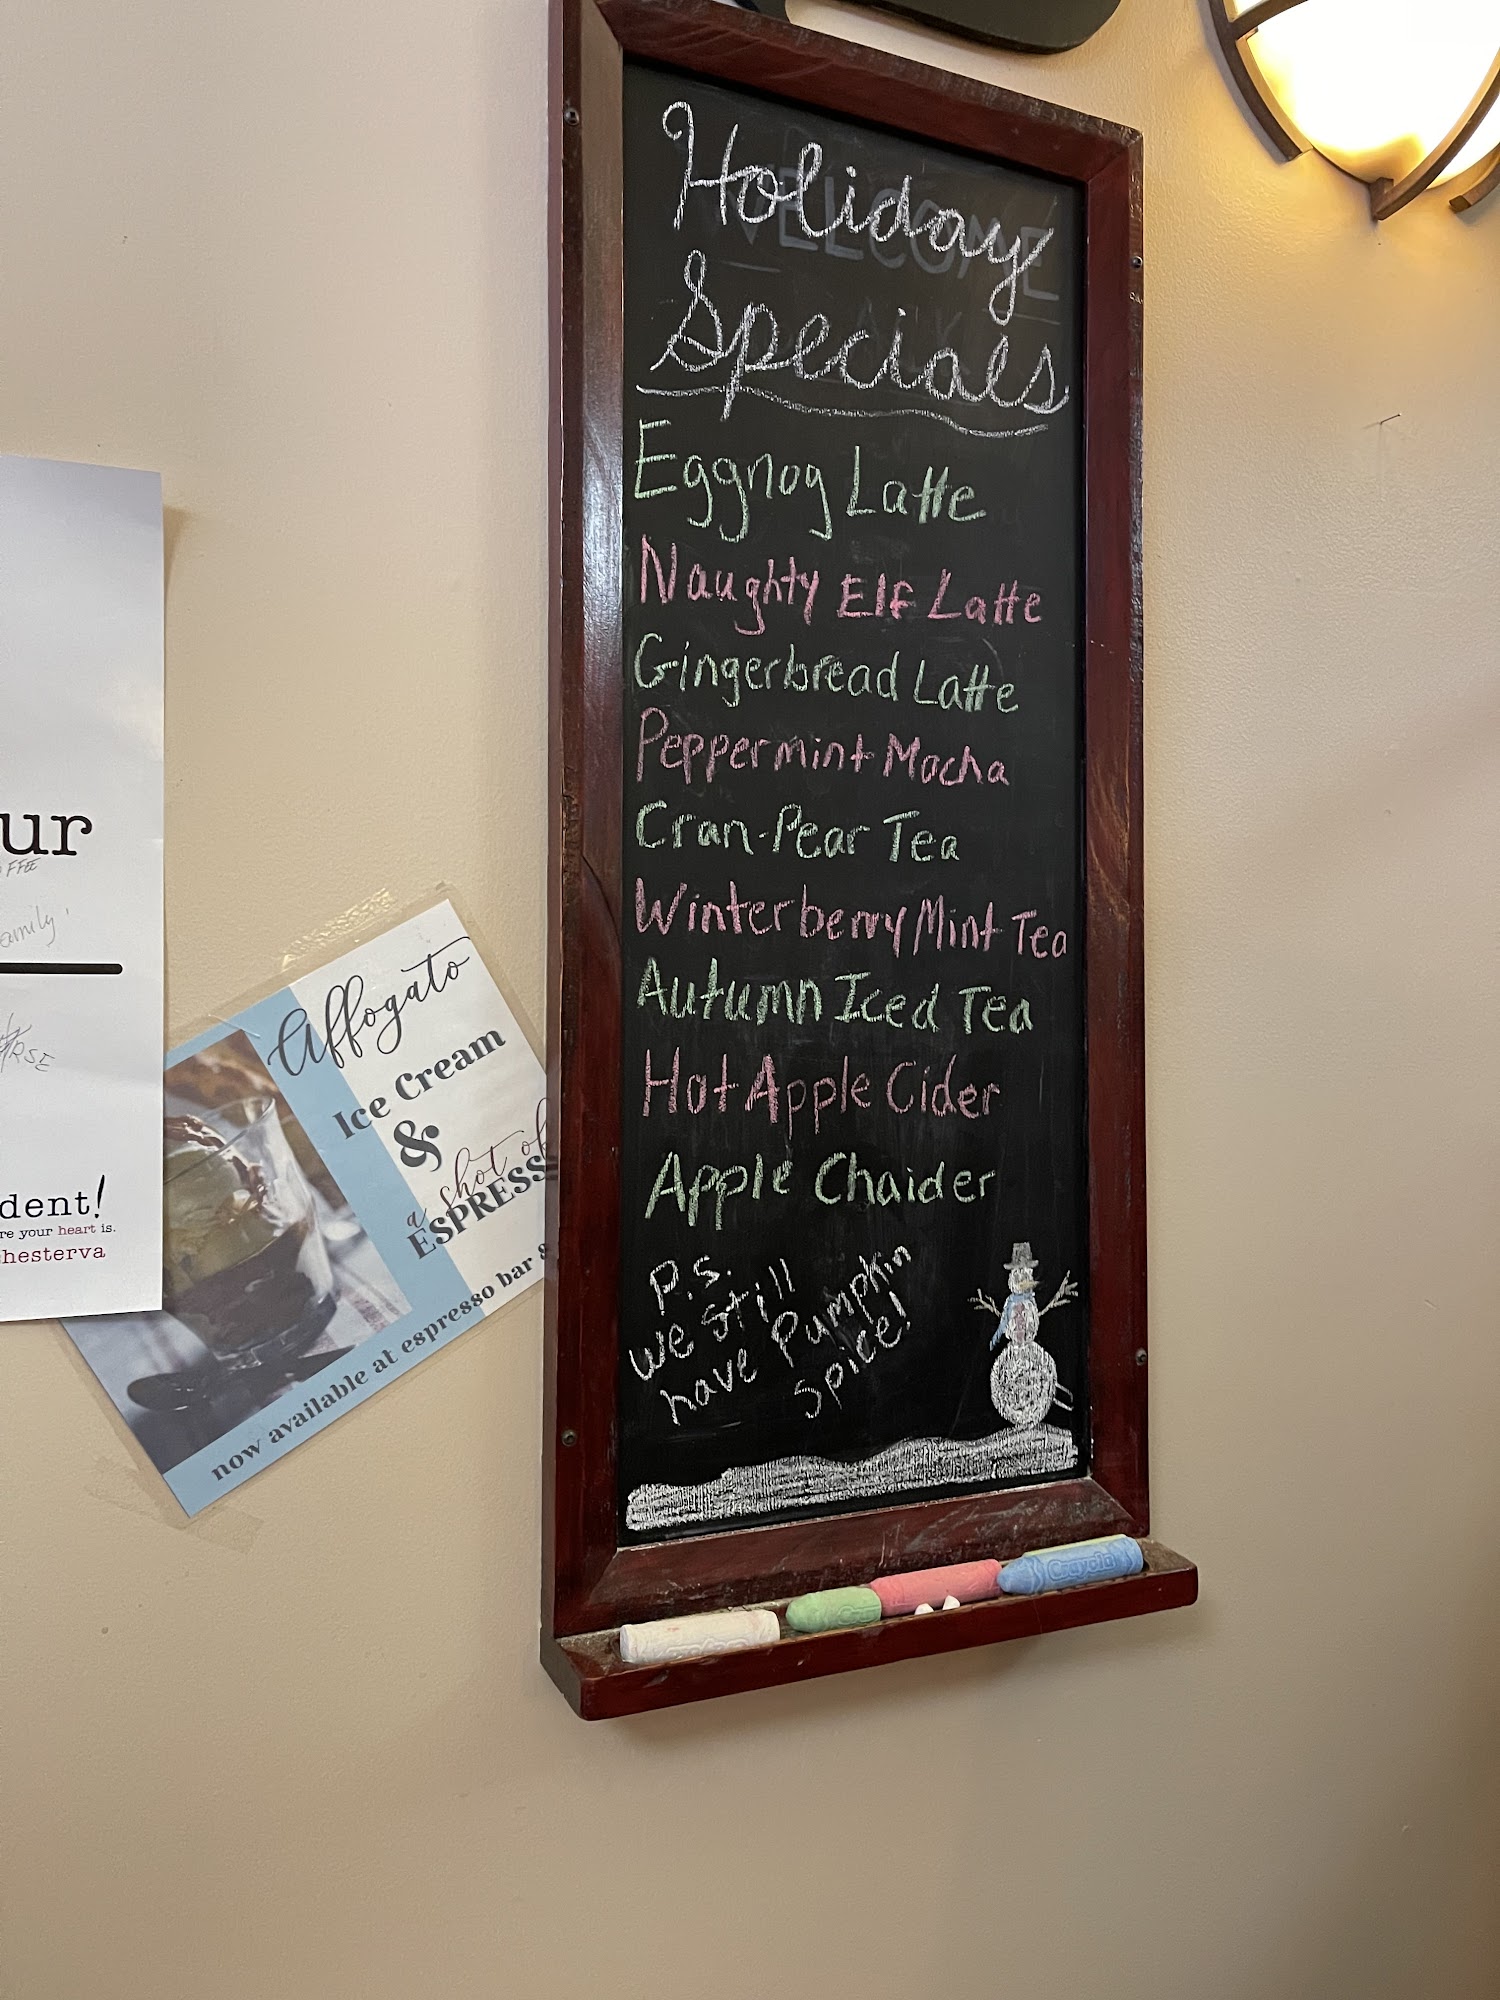 Holiday
Specials
Eggnog Latte
Naughty Elf Latte
Gingerbread Latte
Peppermint Mocha
Cran-Pear Tea
Winterberry Mint Tea
Autumn Iced Tea
Hot Apple Cider
Apple Chaider
P.S.
we still
have Pumpkin
spice!
WELCOME
ur
FFEE
amily'
RSE
dent!
re your heart is.
hesterva
Affogato
Ice Cream
&
a shot of
ESPRESS
now available at espresso bar &
Crayola